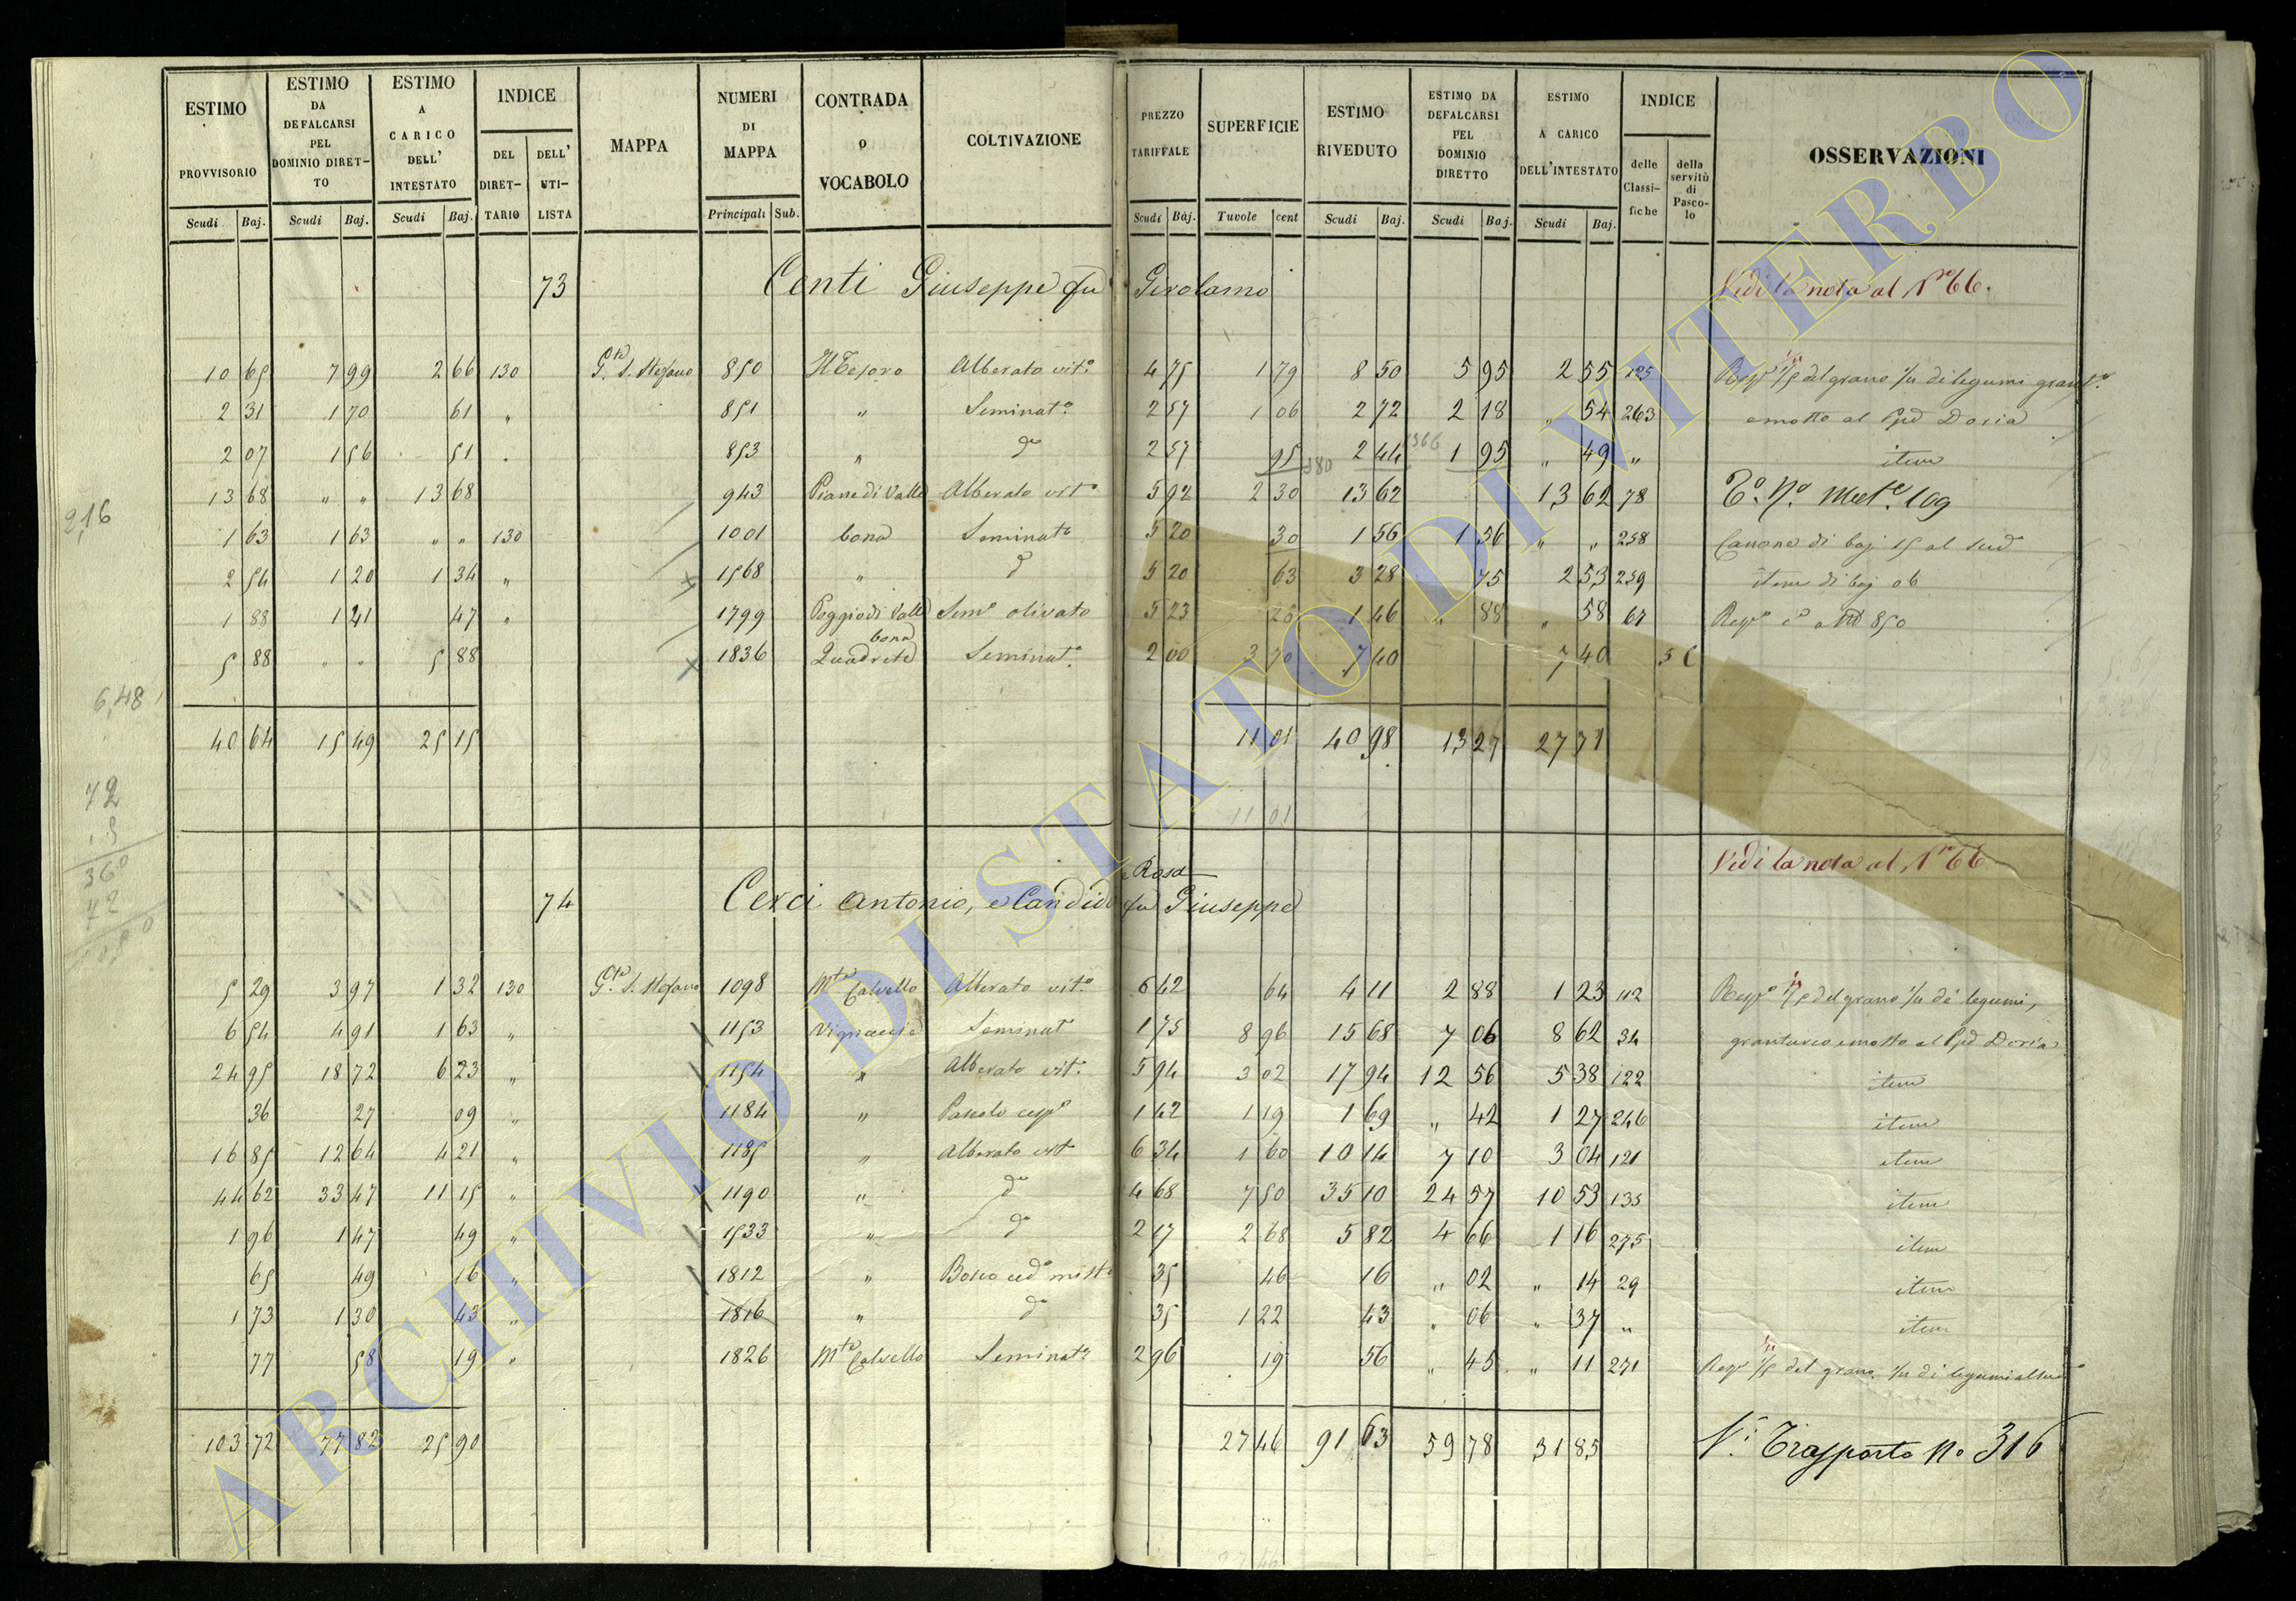 ESTIMO PROVVISORIO Scudi Baj. | ESTIMO DA DEFALCARSI PEL DOMINIO DIRETTO Scudi Baj. | ESTIMO A CARICO DELL' INTESTATO Scudi Baj. | INDICE DEL DIRETTARIO DELL' UTILISTA | MAPPA | NUMERI DI MAPPA Principali Sub. | CONTRADA O VOCABOLO | COLTIVAZIONE | PREZZO TARIFFALE Scudi Baj. | SUPERFICIE Tavole cent | ESTIMO RIVEDUTO Scudi Baj. | ESTIMO DA DEFALCARSI PEL DOMINIO DIRETTO Scudi Baj. | ESTIMO A CARICO DELL'INTESTATO Scudi Baj. | INDICE delle Classifiche della servitù di Pascolo | OSSERVAZIONI
73 Centi Giuseppe fu Girolamo Vedi la nota al No 66.
10 65 7 99 2 66 130 Gte S. Stefano 850 Il Tesoro Alberato vit.o 4 75 1 79 8 50 5 95 2 55 125 1/5 del grano 1/11 di legumi
2 31 1 70 61 " 851 " Seminat.o 2 57 1 06 2 72 2 18 " 54 263 e mosto al Doria
2 07 1 56 51 " 853 " do 2 57 95 2 44 1 95 " 49 " item
13 68 " " 13 68 943 Piane di Valle Alberato vito 5 92 2 30 13 62 13 62 78 109
1 63 1 63 " " 130 1001 bona Seminato 5 20 30 1 56 1 56 " " 258 Canone di baj 15 al sud
2 54 1 20 1 34 " 1568 " do 5 20 63 3 28 75 2 53 259 item di baj 06
1 88 1 41 47 " 1799 Poggio di Valle bona Semo olivato 5 23 28 1 46 " 88 " 58 67 850
5 88 " " 5 88 1836 Quadrete Seminat.o 2 00 3 70 7 40 7 40 5 C
40 64 15 49 25 15 11 01 40 98 13 27 27 71
11 01
Vedi la nota al No 66
74 Cerci Antonio, e Candido e Rosa fu Giuseppe
5 29 3 97 1 32 130 Gte S. Stefano 1098 Mte Calvello Alberato vit.o 6 42 64 4 11 2 88 1 23 112 1/5 del grano 1/11 di legumi,
6 54 4 91 1 63 " 1153 Vignaccie Seminat 1 75 8 96 15 68 7 06 8 62 34 granturco e mosto al Doria
24 95 18 72 6 23 " 1154 " Alberato vit.o 5 94 3 02 17 94 12 56 5 38 122 item
36 27 09 " 1184 " Pascolo cespo 1 42 1 19 1 69 " 42 1 27 246 item
16 85 12 64 4 21 " 1185 " Alberato vito 6 34 1 60 10 14 7 10 3 04 121 item
44 62 33 47 11 15 " 1190 " do 4 68 7 50 35 10 24 57 10 53 135 item
1 96 1 47 49 " 1533 " do 2 17 2 68 5 82 4 66 1 16 275 item
65 49 16 " 1812 " Bosco cedo misto 35 46 16 " 02 " 14 29 item
1 73 1 30 43 " 1816 " do 35 1 22 43 " 06 " 37 " item
77 58 19 " 1826 Mte Calvello Seminat.o 2 96 19 56 " 45 " 11 271 1/5 del grano 1/11 di legumi al sud
103 72 77 82 25 90 27 46 91 63 59 78 31 85 Trasporto No 316
2,16
6,48
72
36
72
ARCHIVIO DI STATO DI VITERBO